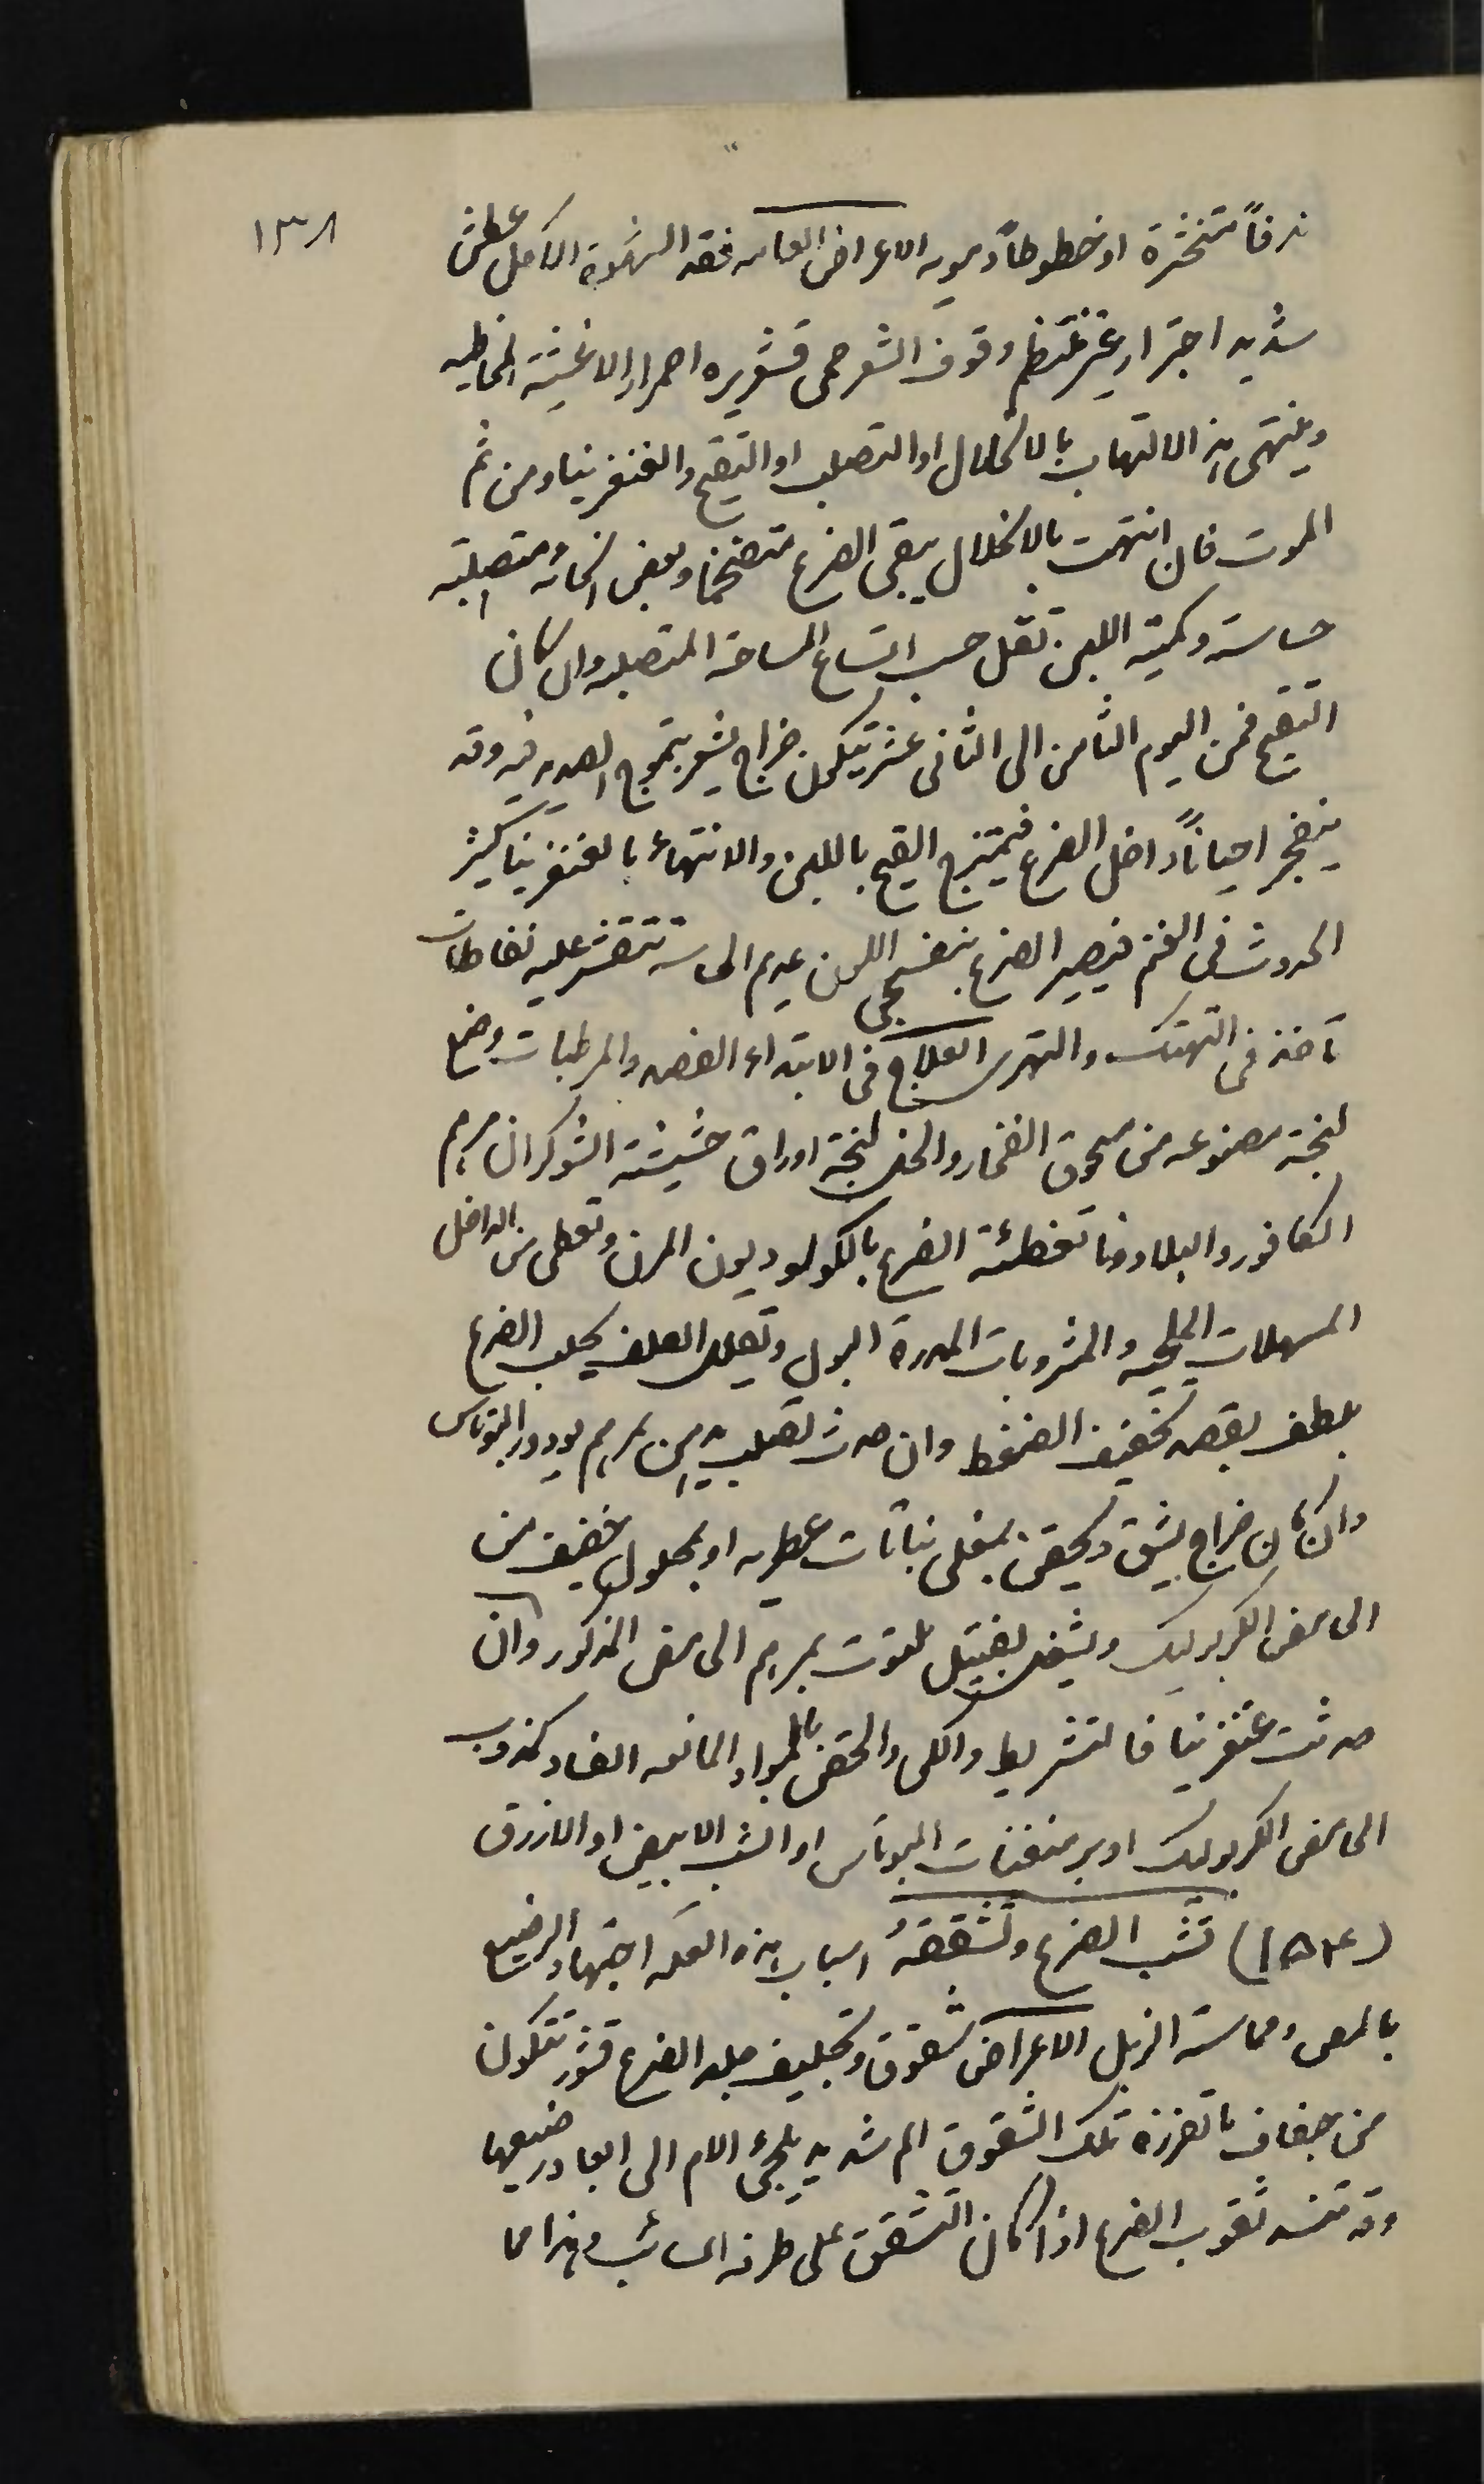 ١٣٨
ندفاً متخثرة او خطوطاً دمويه الاعراض العامه فقد الشهوة الكامل عطش
شديد اجترار غير منتظم وقوف الشعر حمى قشعريره احمرار الاغشية المخاطيه
وينتهي هذ الالتهاب بالانحلال او التصلب او التقيح والغنغرينا ومن ثم
الموت فان انتهت بالانحلال يبقى الضرع متضخما وبعض انحائه متصلبة
حساسة وكمية اللبن تقل حسب اتساع المساحة المتصلبه وان كان
التقيح فمن اليوم الثامن الى الثاني عشر يتكون خراج يشعر بتموج الصديد فيه وقد
ينفجر احياناً داخل الضرع فيمتزج القيح باللبن والانتهاء بالغنغرينا كثير
الحدوث في الغنم فيصير الضرع بنفسجي اللون عديم الحاسة تنتشر عليه نفاطات
تأخذ في التهتك والتهري العلاج في الابتداء الفصد والمرطبات وضع
لبخة مصنوعه من مسحوق الفخار والخل لبخة اوراق حشيشة الشوكران مرهم
الكافور والبلادونا تغطئة الضرع بالكولوديون المرن وتعطى من الداخل
المسهلات الملحيه والمشروبات المدرة البول وتقليل العلف يحلب الضرع
بلطف بقصد تخفيف الضغط وان حدث تصلب يدهن بمرهم يودور البوتاس
وان كان خراج يشق ويحقن بمغلى نباتات عطريه او بمحلول خفيف من
الحامض الكربوليك ويشغل بفتيل ملوث بمرهم الحامض المذكور وان
حدثت غنغرينا فالتشريط والكي والحقن بالمواد المانعه الفساد كمذوب
الحامض الكربوليك او برمنغنات البوتاس او الشب الابيض او الازرق
(١٥٤) تشبب الضرع وتشققهُ اسباب هذه العله اجتهاد الرضيع
بالمص ومماسة الزبل الاعراض شقوق وتجليف جلد الضرع قشور تتكون
من جفاف ما تفرزه تلك الشقوق الم شديد يلجئ الام الى ابعاد رضيعها
وقد تنسد ثقوب الضرع اذا كان التشقق على طرفه السائب وهذا مما